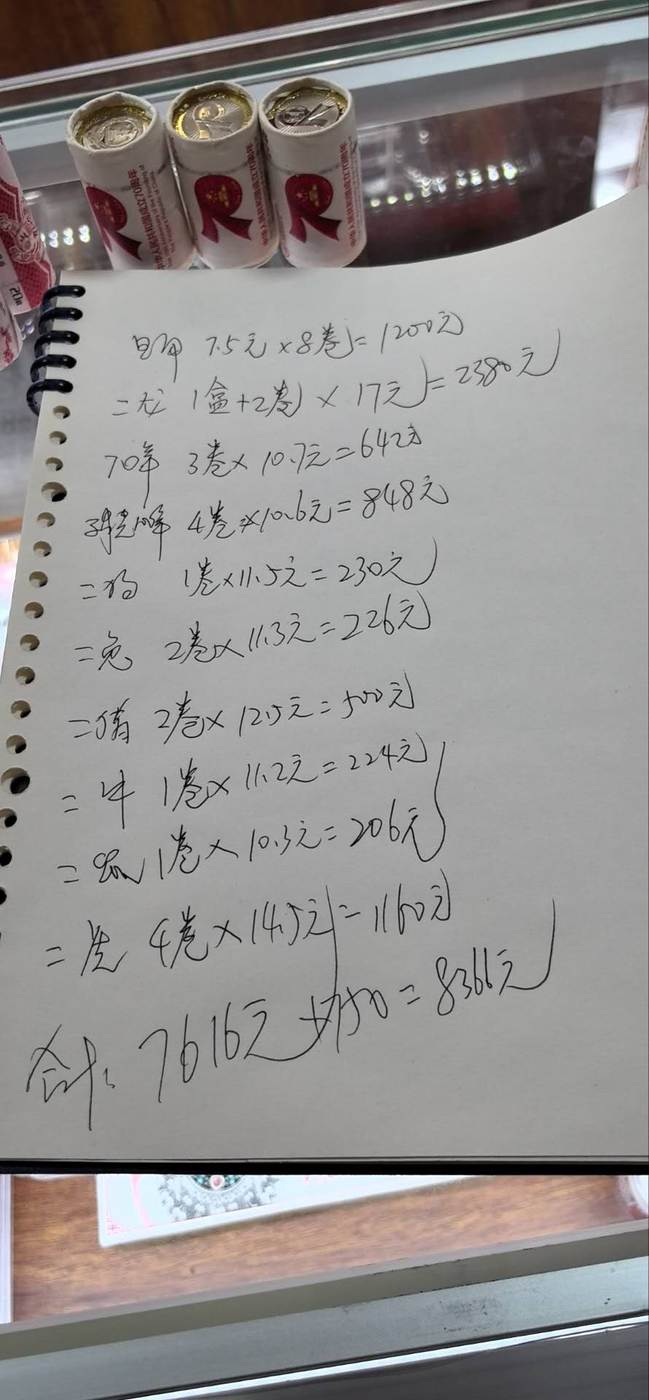 中华人民共和国成立70周年
中华人民共和国成立70周年
20枚
7.5元×8卷=1200元
二龙 (1盒+2卷)×17元=2380元
70年 3卷×10.7元=642元
4卷×10.6元=848元
二狗 1卷×11.5元=230元
二兔 2卷×11.3元=226元
二猪 2卷×12.5元=500元
二牛 1卷×11.2元=224元
二 1卷×10.3元=206元
二 4卷×14.5元=1160元
合计: 7616元+750=8366元